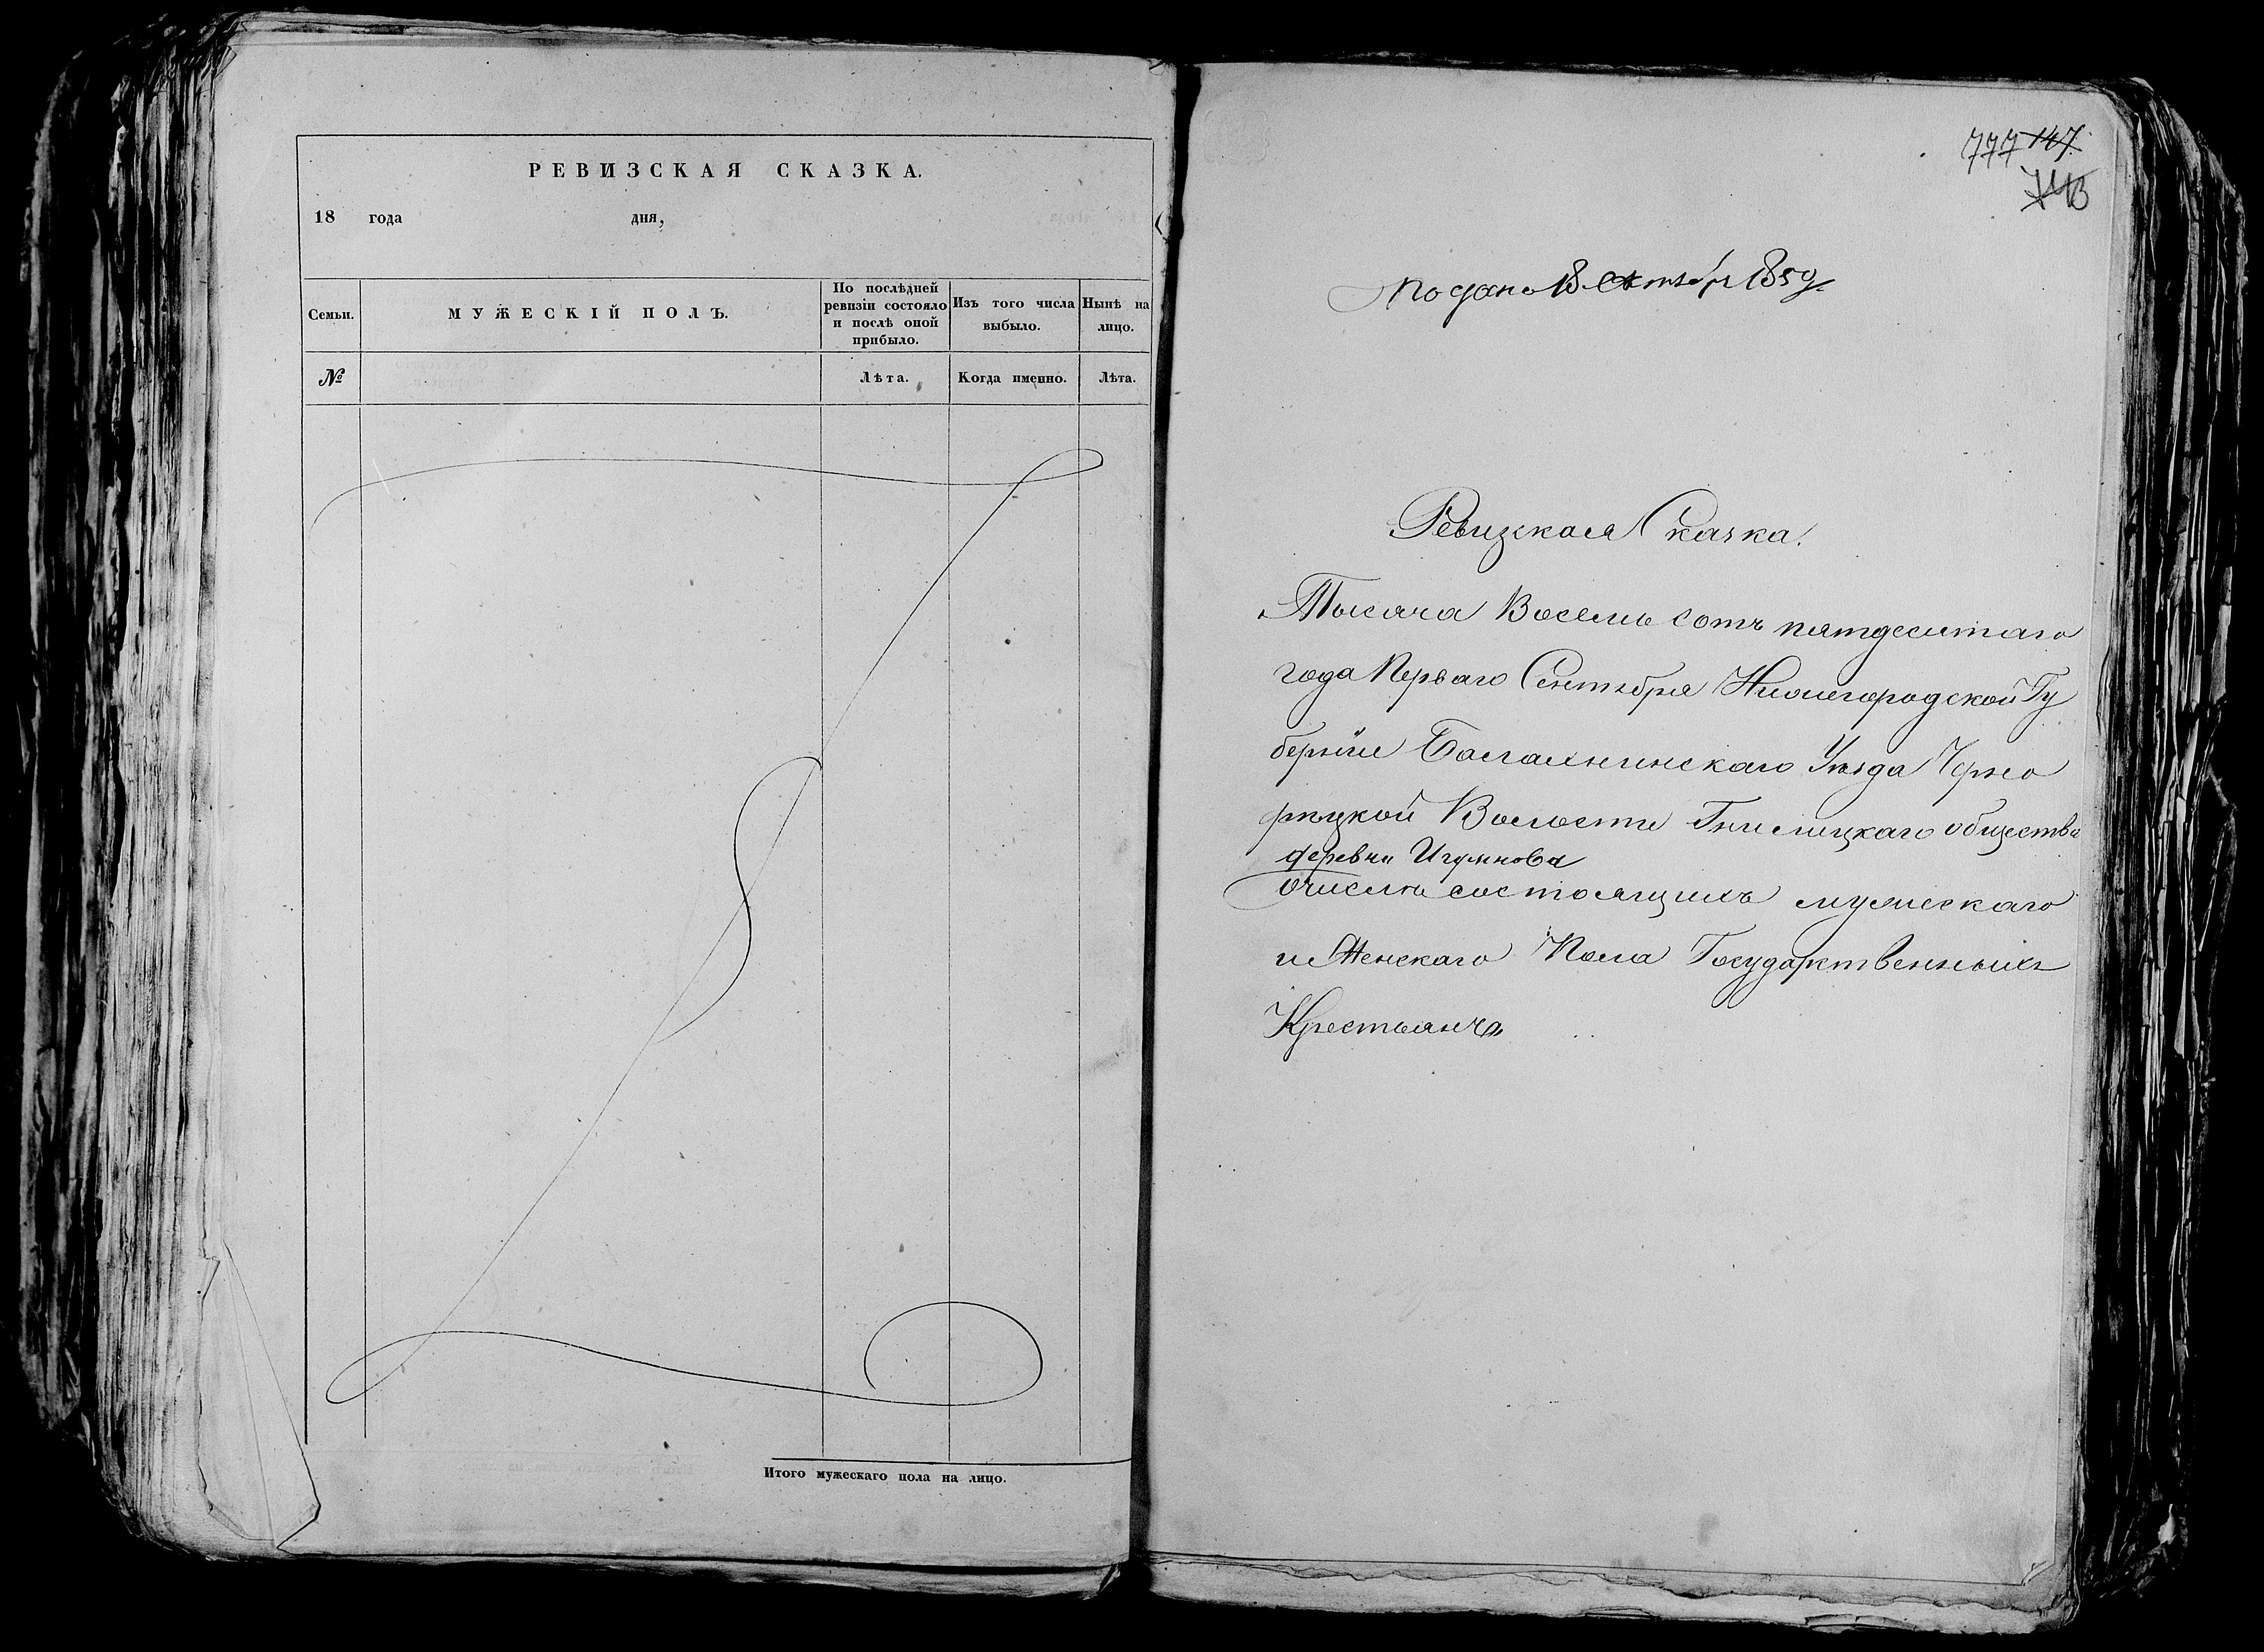 РЕВИЗСКАЯ СКАЗКА.
18 года дня,
Семьи.
МУЖЕСКІЙ ПОЛЪ.
По послѣдней
ревизіи состояло
и послѣ оной
прибыло.
Изъ того числа
выбыло.
Нынѣ на
лицо.
№
Лѣта.
Когда именно.
Лѣта.
Итого мужескаго пола на лицо.
777 147
Подано 18 1850
Ревизкая Сказка.
Тысяча Восемь сотъ пятдесятаго
года Перваго Сентября Нижегородской Гу
берніи Балахнинскаго Уѣзда Черно
рѣцкой Волости Гнилицкаго общества
деревни Игумнова
о числѣ состоящихъ мужескаго
и Женскаго Пола Государственныхъ
Крестьянъ